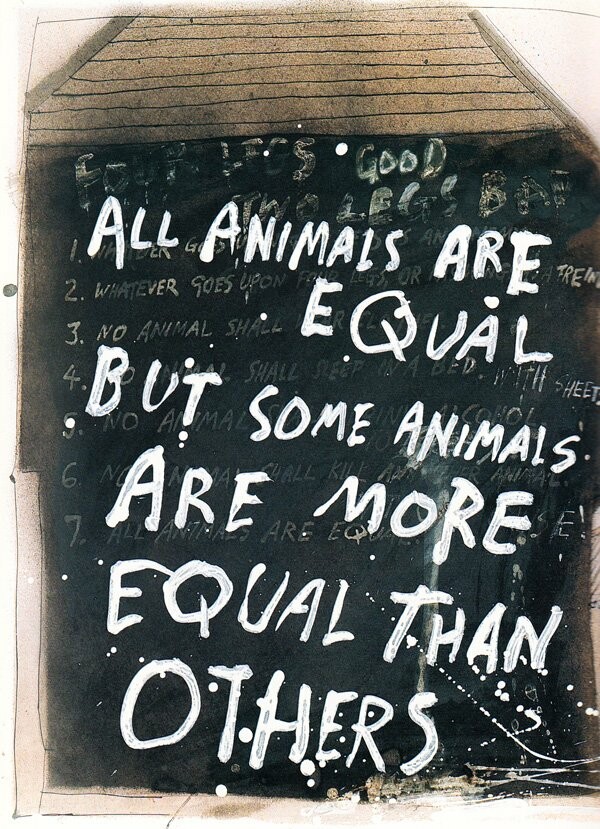 FOUR LEGS GOOD
TWO LEGS BAD
ALL ANIMALS ARE
1. WHATEVER GOES UPON
2. WHATEVER GOES UPON FOUR LEGS, OR
EQUAL
3. NO ANIMAL SHALL
4. NO ANIMAL SHALL SLEEP IN A BED. WITH SHEETS
BUT SOME ANIMALS
5. NO ANIMAL ALCOHOL
6. NO ANIMAL SHALL KILL ANY OTHER ANIMAL.
ARE MORE
7. ALL ANIMALS ARE EQUAL.
EQUAL THAN
OTHERS